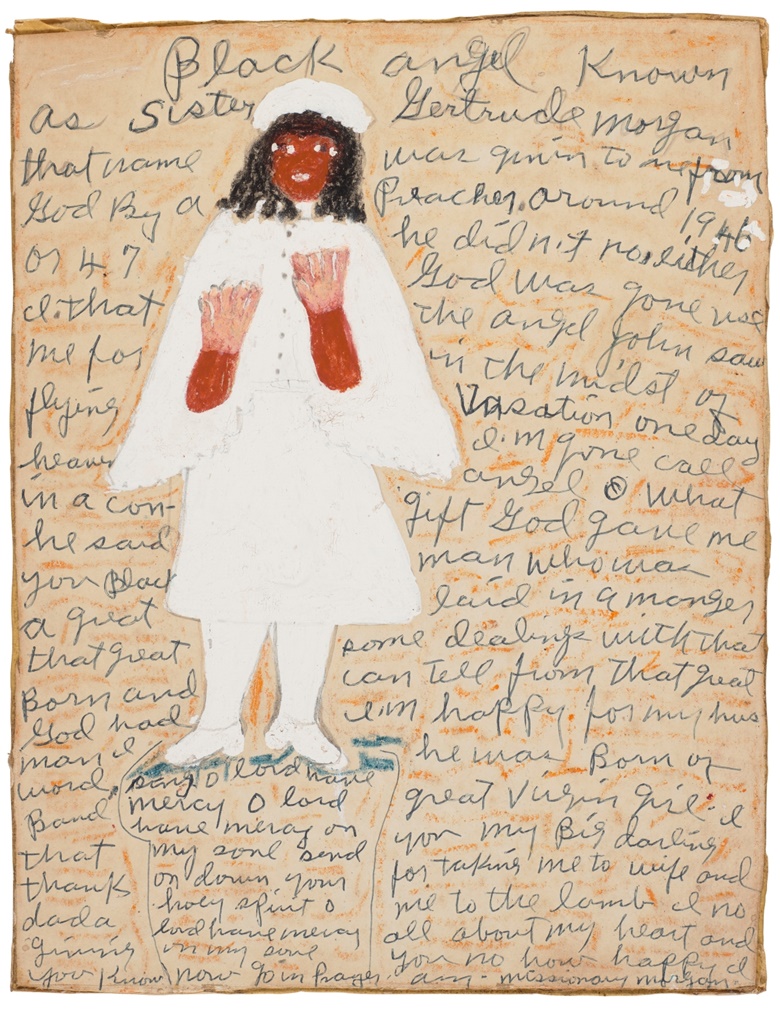 Black angel Known
as Sister Gertrude morgan
that name was givin to me from
God By a Preacher. around 1946
or 47 he did n.t no. either
I. that God was gone use
me for the angel John saw
flying in the midst of
heaven
in a con- Vasation one day
he said I.m gone call
you Black angel what
a great gift God gave me
that great man who was
Born and laid in a manger
God had some dealings with that
man I can tell from that great
word. I.m happy for my hus
Band he was Born of
that great Virgin girl. I
thank you my Big darling
dada for taking me to wife and
giving me to the lamb I no
you Know all about my heart and
you no how happy I
am - missionary morgan.
sang O lord have
mercy O lord
have mercy on
my soul send
on down your
holy spirit O
lord have mercy
on my soul
now go in Prayer